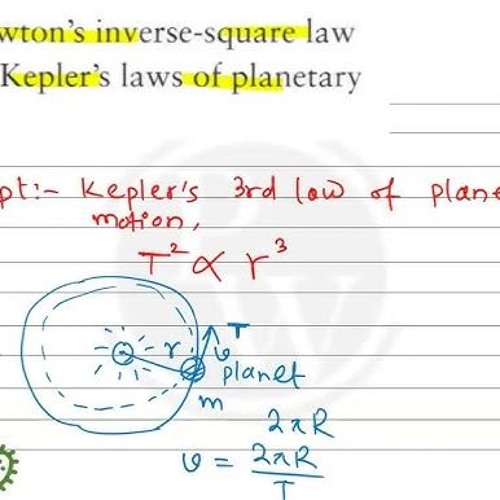 wton's inverse-square law
Kepler's laws of planetary
pt:- Kepler's 3rd law of plane
motion,
T² ∝ r³
T
r
v
planet
m
2πR
v = 2πR
T